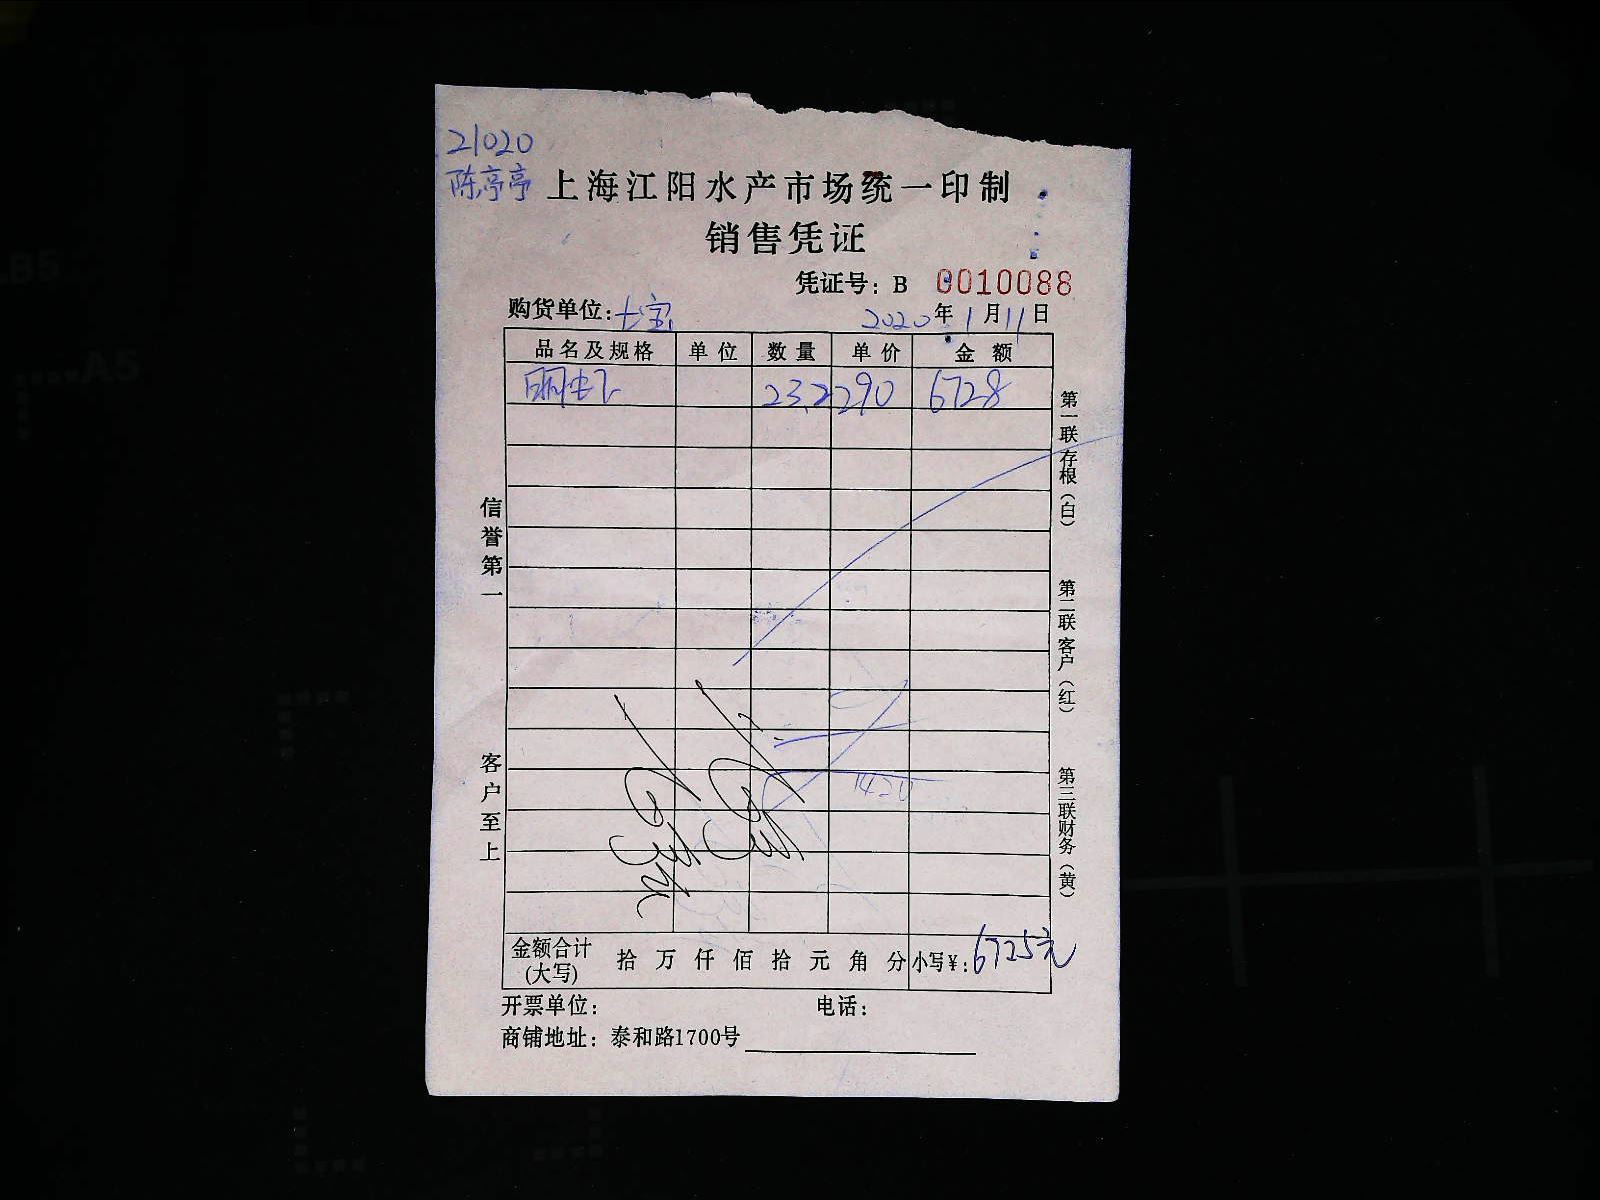 21020
陈亭亭
上海江阳水产市场统一印制
销售凭证
凭证号：B 0010088
购货单位：七宝 2020年1月11日
品名及规格 单位 数量 单价 金额
明虾 23.2 290 6728
信誉第一
客户至上
第一联存根（白）
第二联客户（红）
第三联财务（黄）
1420
金额合计（大写） 拾 万 仟 佰 拾 元 角 分 小写¥：6725元
开票单位： 电话：
商铺地址：泰和路1700号